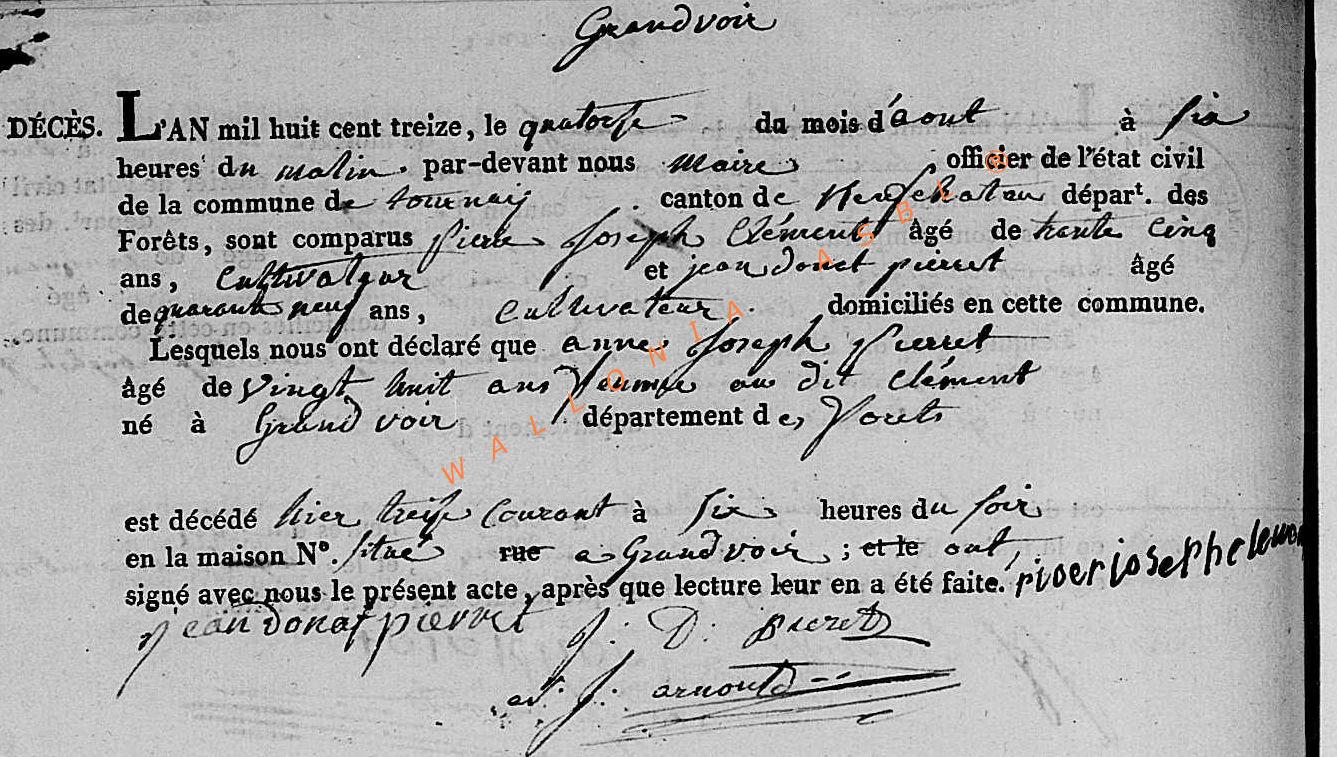 Grandvoir
DÉCÈS. L'AN mil huit cent treize, le quatorse du mois d'aout à six
heures du matin. par-devant nous maire officier de l'état civil
de la commune de tournay canton de Neufchateau départ. des
Forêts, sont comparus pierre Joseph Clément âgé de trente cinq
ans, cultivateur et jean donat pierret âgé
de quarante neuf ans, cultivateur. domiciliés en cette commune.
Lesquels nous ont déclaré que anne Joseph Pierret
âgé de vingt huit ans femme au dit Clément
né à Grand voir département des forets
est décédé hier treise courant à six heures du soir
en la maison N°. situé rue a Grandvoir ; et le ont
signé avec nous le présent acte, après que lecture leur en a été faite.
jean donat pierret J: D: pierret
arnould
WALLONIA ASBL ©